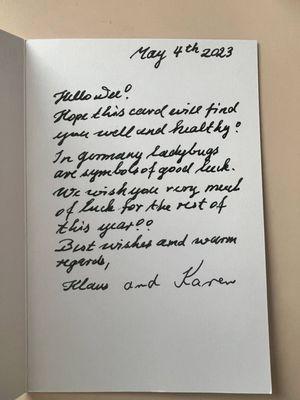 May 4th 2023
Hello Wee!
Hope this card will find
you well and healthy!
In germany ladybugs
are symbols of good luck.
We wish you very much
of luck for the rest of
this year!!
Best wishes and warm
regards,
Klaus and Karen